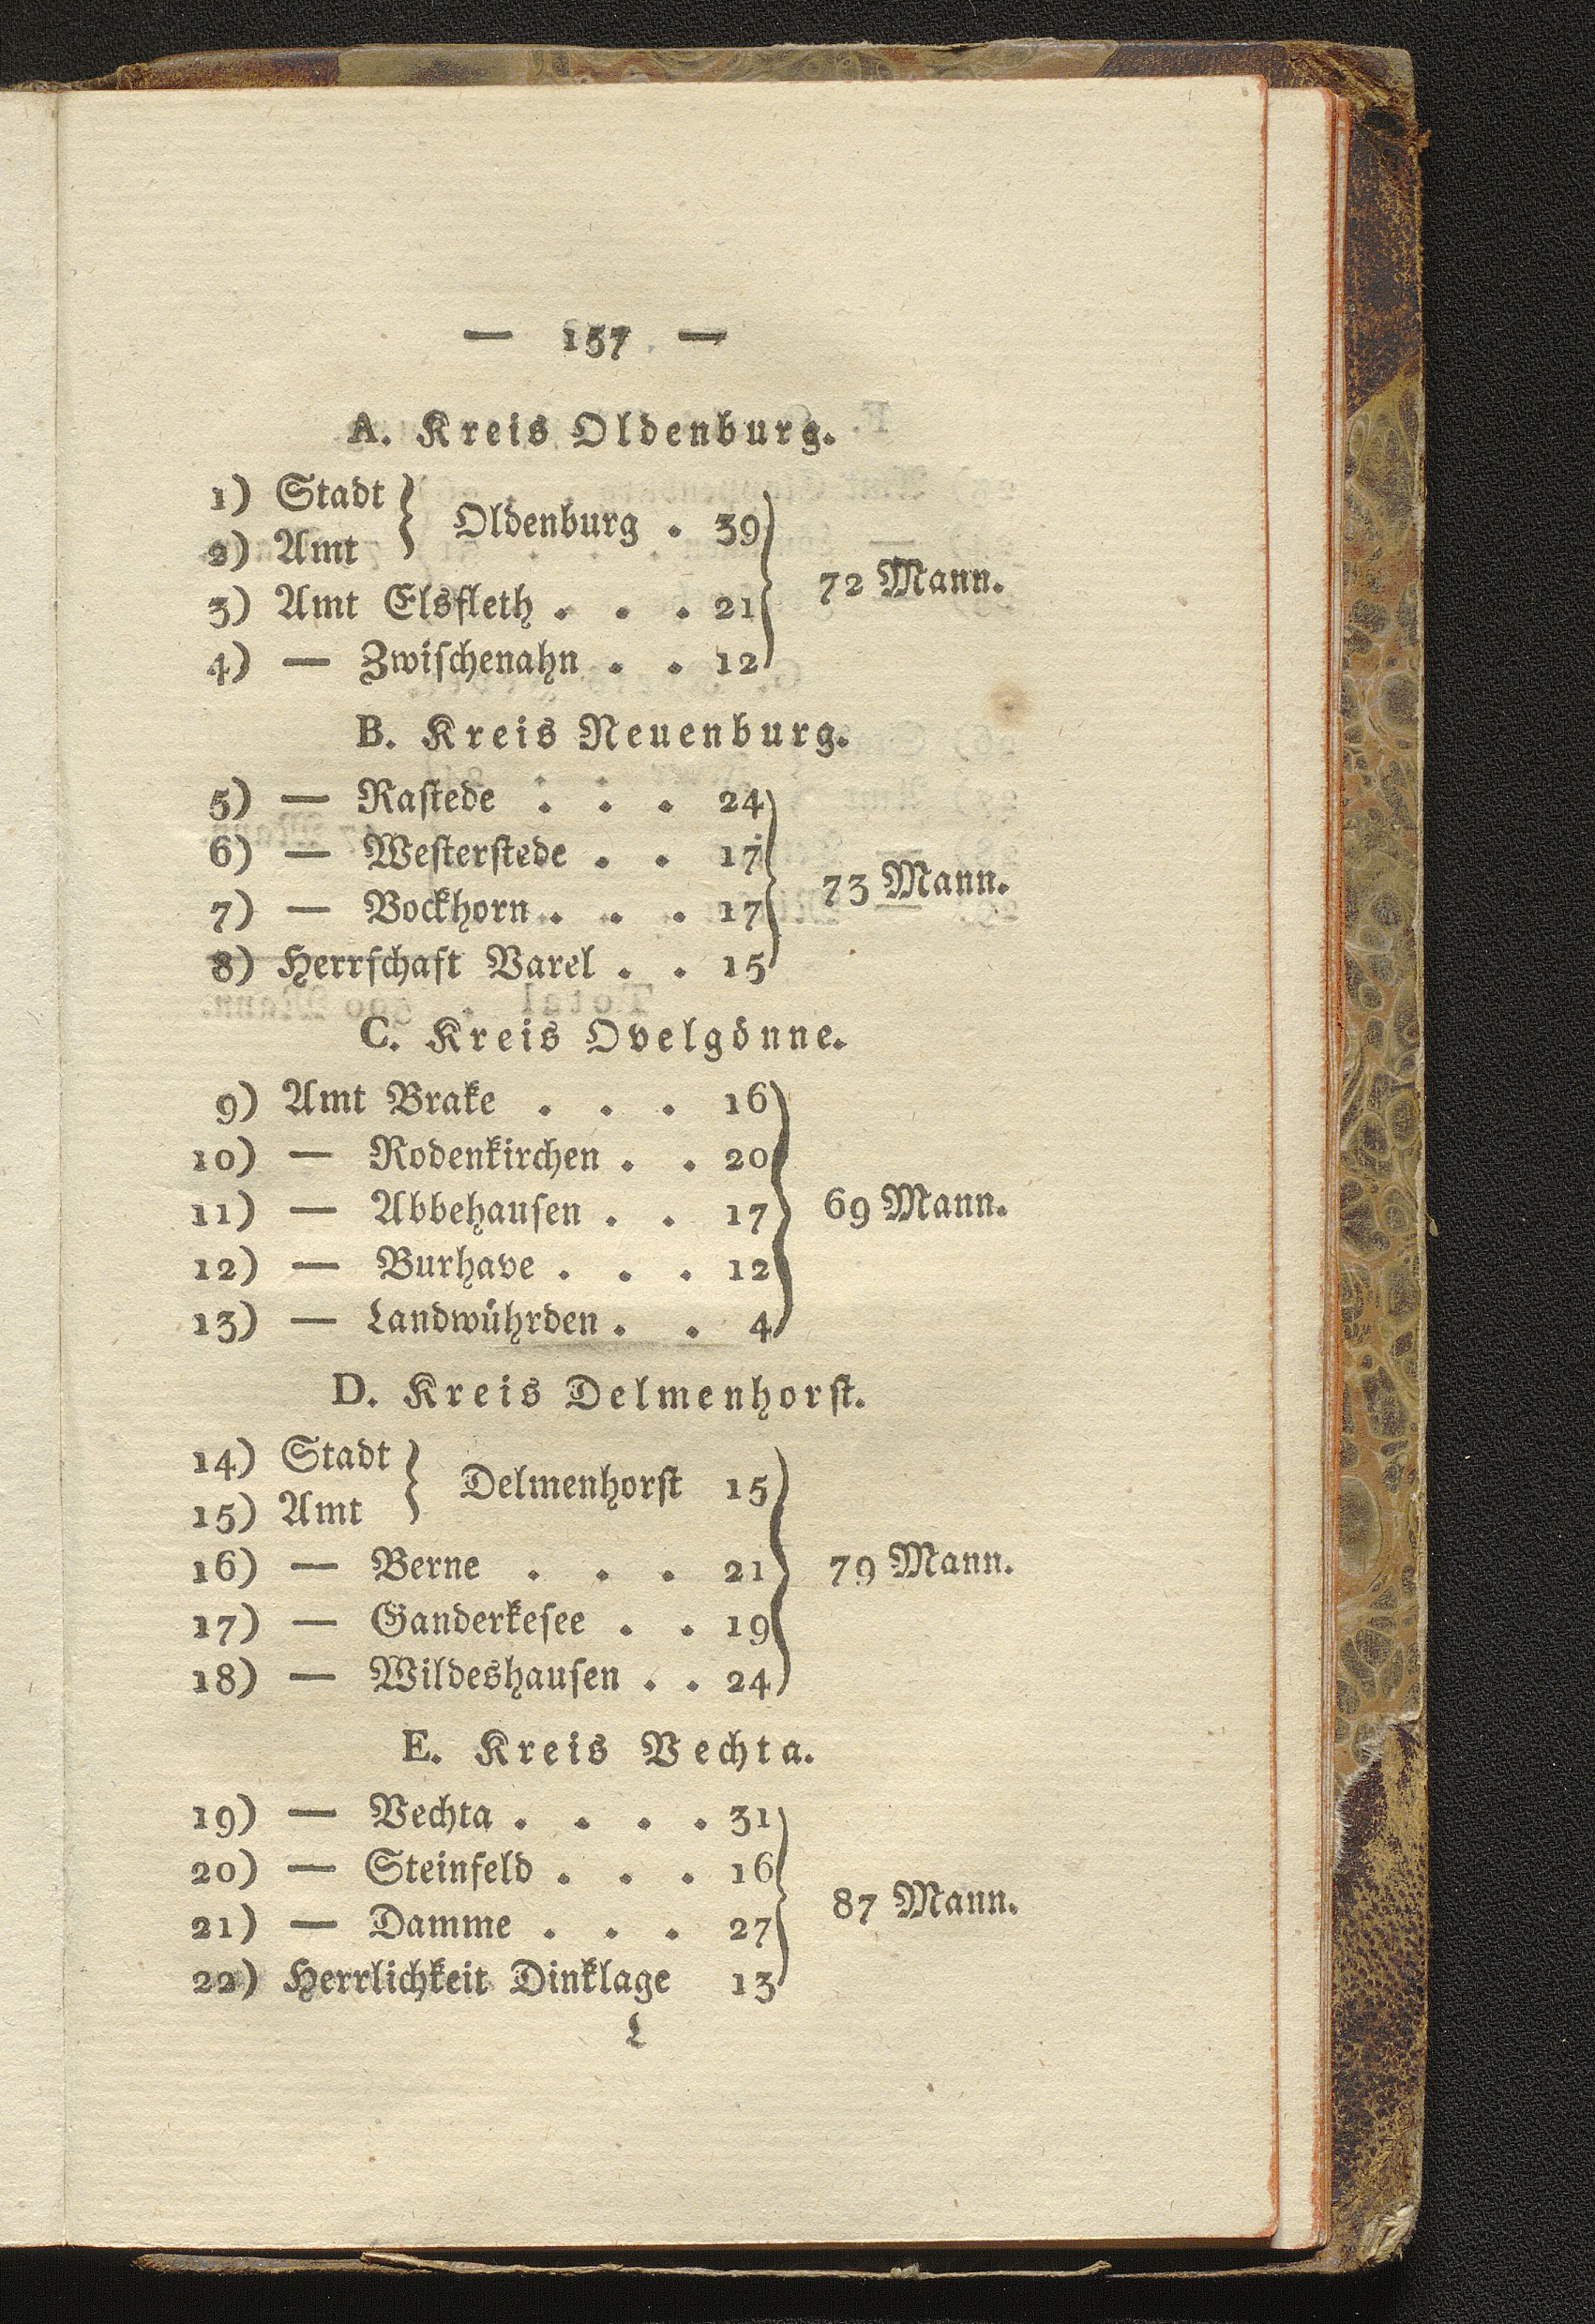 — 157 —
A. Kreis Oldenburg.
1) Stadt } Oldenburg . 39
2) Amt
3) Amt Elsfleth . . . 21
4) — Zwischenahn . . 12
} 72 Mann.
B. Kreis Neuenburg.
5) — Rastede . . . 24
6) — Westerstede . . 17
7) — Bockhorn . . . 17
8) Herrschaft Varel . . 15
} 73 Mann.
C. Kreis Ovelgönne.
9) Amt Brake . . . 16
10) — Rodenkirchen . . 20
11) — Abbehausen . . 17
12) — Burhave . . . 12
13) — Landwührden . . 4
} 69 Mann.
D. Kreis Delmenhorst.
14) Stadt } Delmenhorst 15
15) Amt
16) — Berne . . . 21
17) — Ganderkesee . . 19
18) — Wildeshausen . . 24
} 79 Mann.
E. Kreis Vechta.
19) — Vechta . . . . 31
20) — Steinfeld . . . 16
21) — Damme . . . 27
22) Herrlichkeit Dinklage 13
} 87 Mann.
L